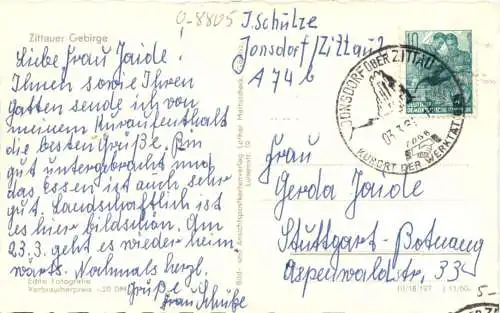 0-8805
J. Schulze
Jonsdorf/Zittau
A 74 b
Zittauer Gebirge
Liebe Frau Jaide.
Ihnen sowie Ihren
Gatten sende ich von
meinem Kuraufenthalt
die besten Grüße. Bin
gut untergebracht und
das Essen ist auch sehr
gut. Landschaftlich ist
es hier bildschön. Am
23.3. geht es wieder heim
wärts. Nochmals herzl.
Grüße
Frau Schulze
Echte Fotografie
Verbraucherpreis -.20 DM
Bild- und Ansichtskartenverlag Lothar
10
DEUTSCHE
DEMOKRATISCHE
JONSDORF ÜBER ZITTAU
KURORT DER WERKTÄTIGEN
Frau
Gerda Jaide
Stuttgart-Botnang
Aspenwaldstr. 33
III/18/197